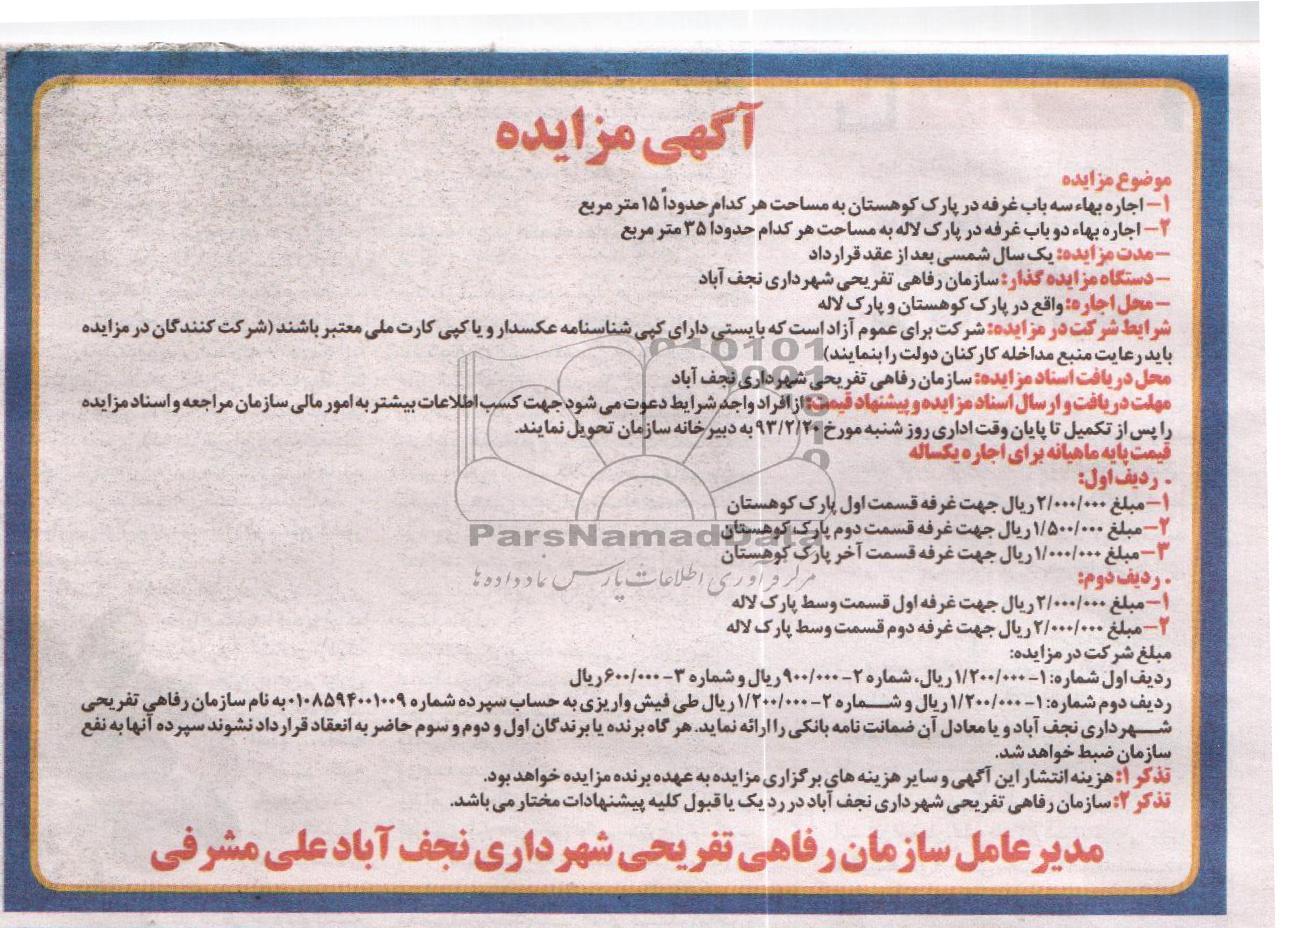 آگهی مزایده
موضوع مزایده
۱- اجاره بهاء سه باب غرفه در پارک کوهستان به مساحت هر کدام حدوداً ۱۵ متر مربع
۲- اجاره بهاء دو باب غرفه در پارک لاله به مساحت هر کدام حدودا ۳۵ متر مربع
- مدت مزایده: یک سال شمسی بعد از عقد قرارداد
- دستگاه مزایده گذار: سازمان رفاهی تفریحی شهرداری نجف آباد
- محل اجاره: واقع در پارک کوهستان و پارک لاله
شرایط شرکت در مزایده: شرکت برای عموم آزاد است که بایستی دارای کپی شناسنامه عکسدار و یا کپی کارت ملی معتبر باشند (شرکت کنندگان در مزایده
باید رعایت منبع مداخله کارکنان دولت را بنمایند)
محل دریافت اسناد مزایده: سازمان رفاهی تفریحی شهرداری نجف آباد
مهلت دریافت و ارسال اسناد مزایده و پیشنهاد قیمت: از افراد واجد شرایط دعوت می شود جهت کسب اطلاعات بیشتر به امور مالی سازمان مراجعه و اسناد مزایده
را پس از تکمیل تا پایان وقت اداری روز شنبه مورخ ۹۳/۲/۲۰ به دبیرخانه سازمان تحویل نمایند.
قیمت پایه ماهیانه برای اجاره یکساله
. ردیف اول:
۱- مبلغ ۲/۰۰۰/۰۰۰ ریال جهت غرفه قسمت اول پارک کوهستان
۲- مبلغ ۱/۵۰۰/۰۰۰ ریال جهت غرفه قسمت دوم پارک کوهستان
۳- مبلغ ۱/۰۰۰/۰۰۰ ریال جهت غرفه قسمت آخر پارک کوهستان
. ردیف دوم:
۱- مبلغ ۲/۰۰۰/۰۰۰ ریال جهت غرفه اول قسمت وسط پارک لاله
۲- مبلغ ۲/۰۰۰/۰۰۰ ریال جهت غرفه دوم قسمت وسط پارک لاله
مبلغ شرکت در مزایده:
ردیف اول شماره: ۱- ۱/۲۰۰/۰۰۰ ریال، شماره ۲- ۹۰۰/۰۰۰ ریال و شماره ۳- ۶۰۰/۰۰۰ ریال
ردیف دوم شماره: ۱- ۱/۲۰۰/۰۰۰ ریال و شماره ۲- ۱/۲۰۰/۰۰۰ ریال طی فیش واریزی به حساب سپرده شماره ۰۱۰۸۵۹۴۰۰۱۰۰۹ به نام سازمان رفاهی تفریحی
شهرداری نجف آباد و یا معادل آن ضمانت نامه بانکی را ارائه نماید. هر گاه برنده یا برندگان اول و دوم و سوم حاضر به انعقاد قرارداد نشوند سپرده آنها به نفع
سازمان ضبط خواهد شد.
تذکر ۱: هزینه انتشار این آگهی و سایر هزینه های برگزاری مزایده به عهده برنده مزایده خواهد بود.
تذکر ۲: سازمان رفاهی تفریحی شهرداری نجف آباد در رد یک یا قبول کلیه پیشنهادات مختار می باشد.
مدیر عامل سازمان رفاهی تفریحی شهرداری نجف آباد علی مشرفی
ParsNamadData
مرکز فرآوری اطلاعات پارس نماد داده ها